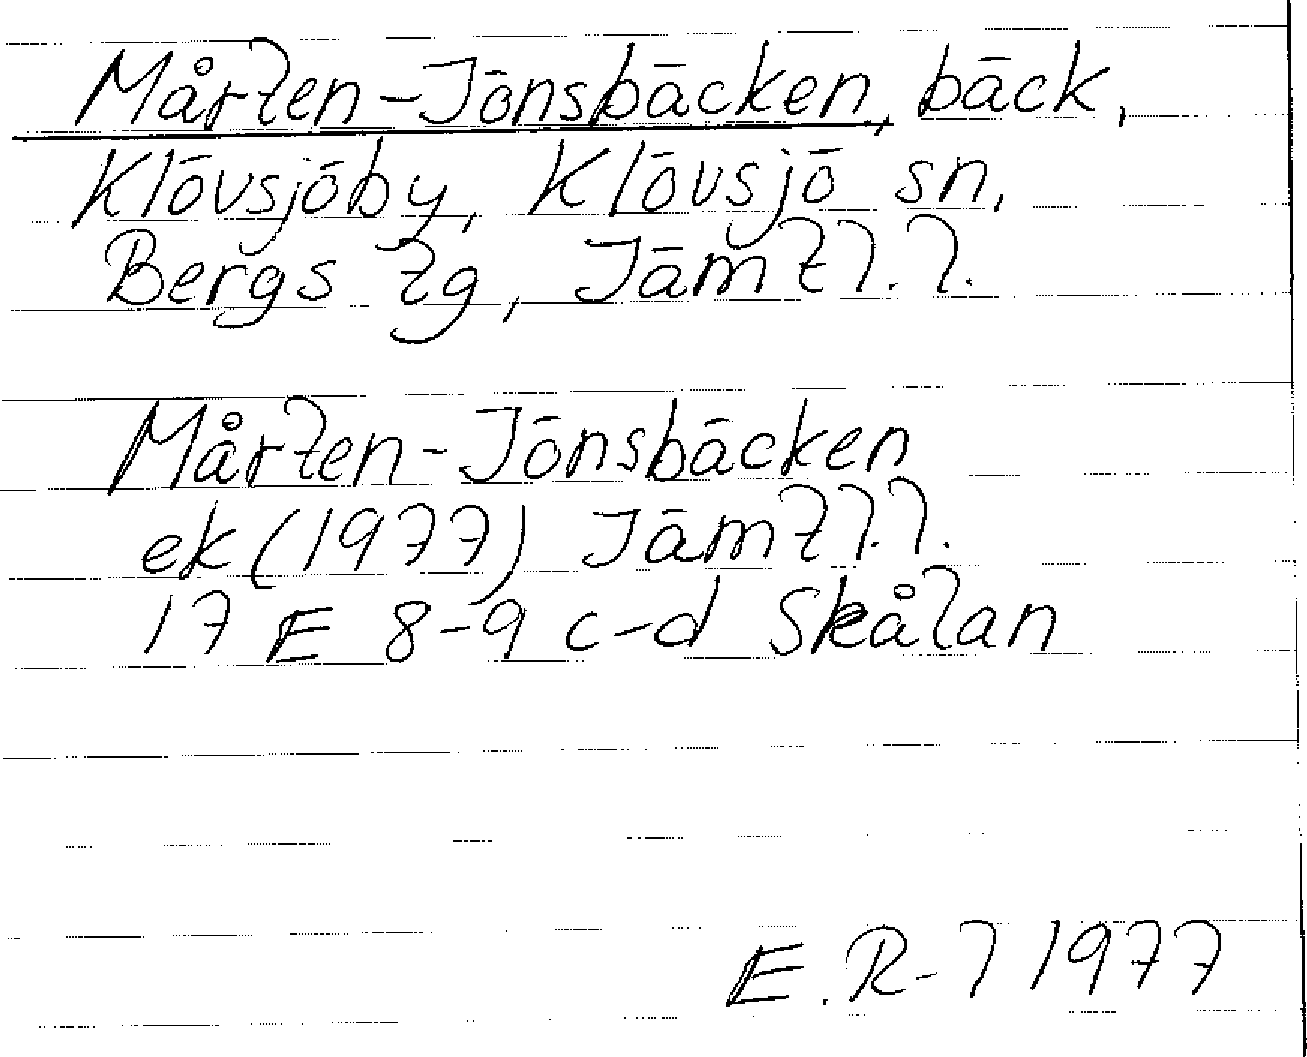 Mårten-Jönsbäcken, bäck,
Klövsjöby, Klövsjö sn,
Bergs tg, Jämtl. l.
Mårten-Jönsbäcken
ek (1977) Jämtl. l.
17 E 8-9 c-d Skålan
E. R-l 1977